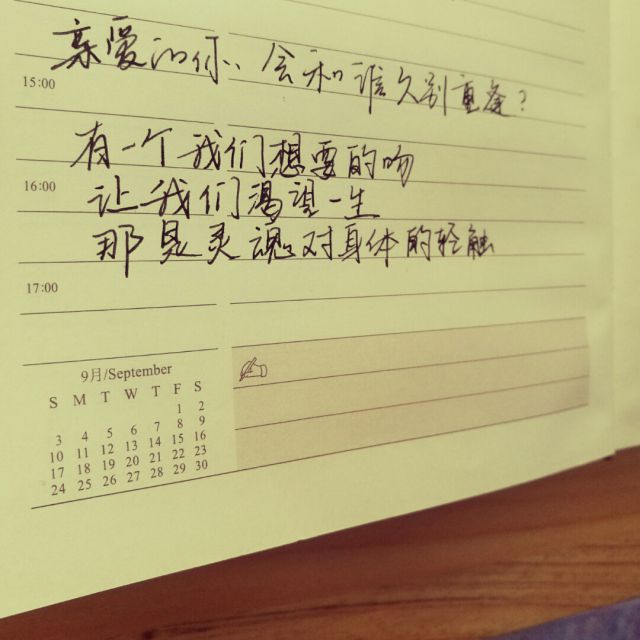 亲爱的你、会和谁久别重逢？
15:00
有一个我们想要的吻
16:00
让我们渴望一生
那是灵魂对身体的轻触
17:00
9月/September
S M T W T F S
1 2
3 4 5 6 7 8 9
10 11 12 13 14 15 16
17 18 19 20 21 22 23
24 25 26 27 28 29 30